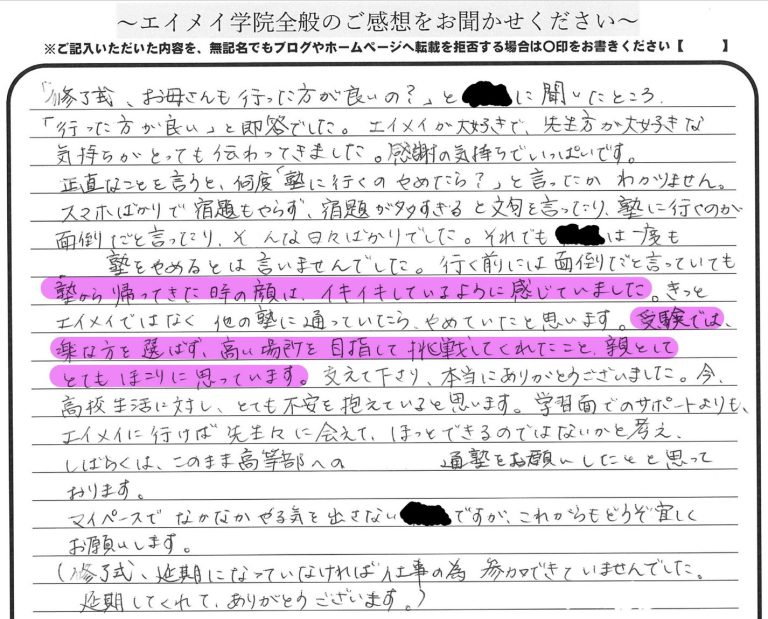 ～エイメイ学院全般のご感想をお聞かせください～
※ご記入いただいた内容を、無記名でもブログやホームページへ転載を拒否する場合は〇印をお書きください【　　】
「修了式、お母さんも行った方が良いの？」と　に聞いたところ、
「行った方が良い」と即答でした。エイメイが大好きで、先生方が大好きな
気持ちがとっても伝わってきました。感謝の気持ちでいっぱいです。
正直なことを言うと、何度「塾に行くのやめたら？」と言ったかわかりません。
スマホばかりで宿題もやらず、宿題が多すぎると文句を言ったり、塾に行くのが
面倒だと言ったり、そんな日々ばかりでした。それでも　は一度も
塾をやめるとは言いませんでした。行く前には面倒だと言っていても
塾から帰ってきた時の顔は、イキイキしているように感じていました。きっと
エイメイではなく他の塾に通っていたら、やめていたと思います。受験では、
楽な方を選ばず、高い場所を目指して挑戦してくれたこと、親として
とてもほこりに思っています。支えて下さり、本当にありがとうございました。今、
高校生活に対し、とても不安を抱えていると思います。学習面でのサポートよりも、
エイメイに行けば先生々に会えて、ほっとできるのではないかと考え、
しばらくは、このまま高等部への　通塾をお願いしたいと思って
おります。
マイペースでなかなかやる気を出さない　ですが、これからもどうぞ宜しく
お願いします。
（修了式、延期になっていなければ仕事の為参加できていませんでした。
延期してくれて、ありがとうございます。）